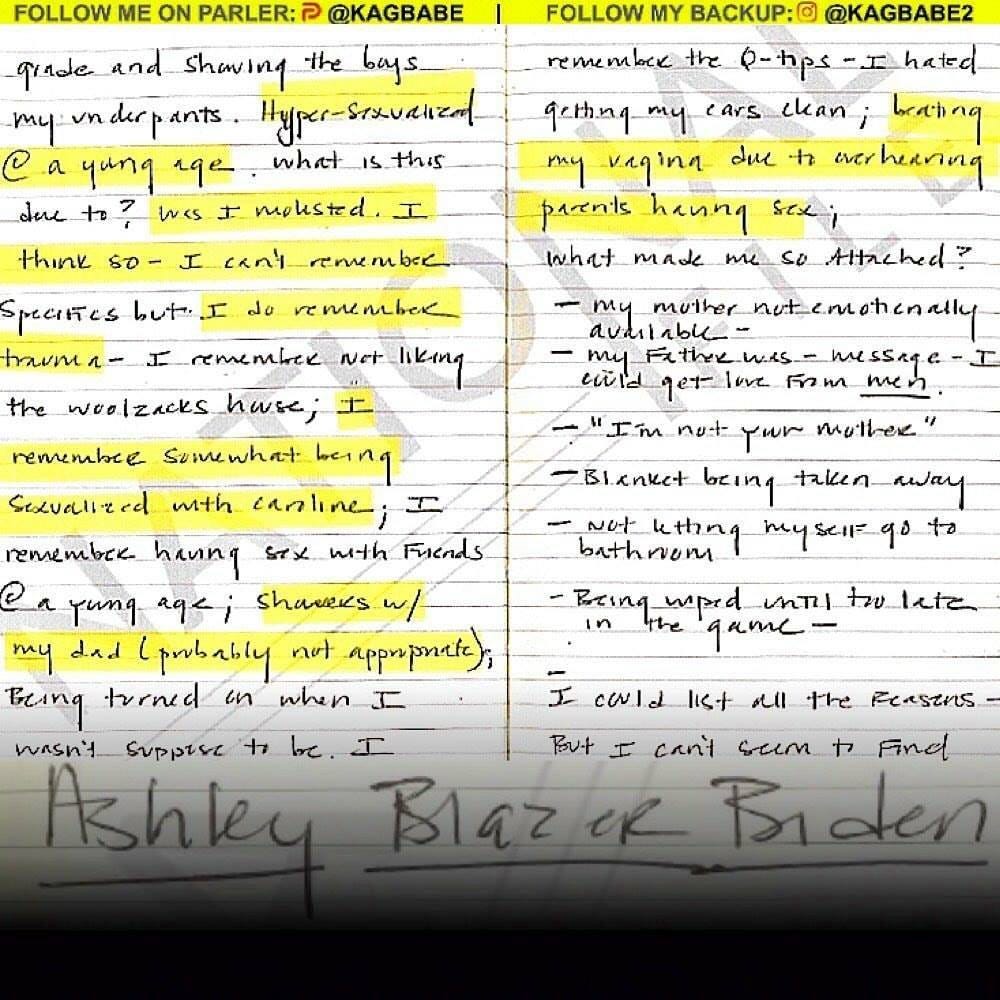 FOLLOW ME ON PARLER: @KAGBABE | FOLLOW MY BACKUP: @KAGBABE2
grade and shaving the boys
my underpants. Hyper-sexualized
@ a young age. what is this
due to? was I molested. I
think so - I can't remember
specifics but I do remember
trauma - I remember not liking
the woolzacks house; I
remember somewhat being
sexualized with caroline; I
remember having sex with Friends
@ a young age; showers w/
my dad (probably not appropriate);
Being turned on when I
wasn't suppose to be. I
remember the Q-tips - I hated
getting my ears clean;
my vagina due to overhearing
parents having sex;
What made me so Attached?
- my mother not emotionally
available -
- my Father was - message - I
could get love from men.
- "I'm not your mother"
- Blanket being taken away
- not letting myself go to
bathroom
- Being wiped until too late
in the game -
-
I could list all the reasons -
But I can't seem to Find
Ashley Blazer Biden
NATIONAL FILE